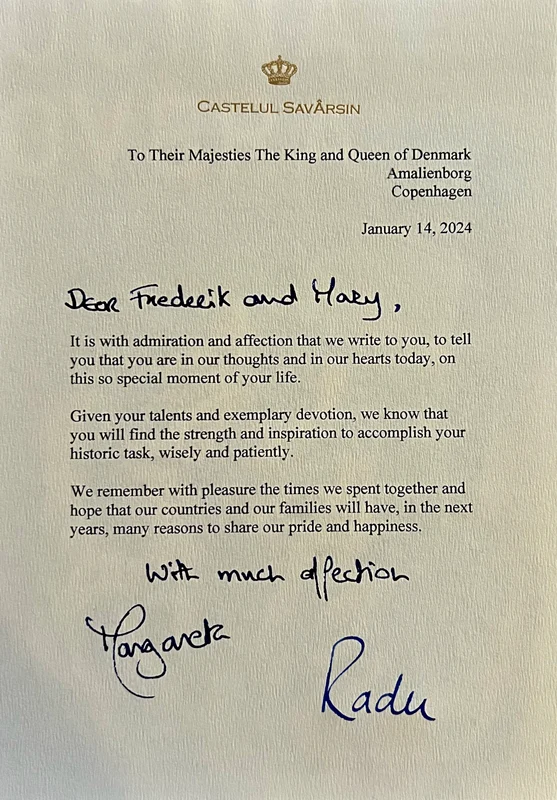 CASTELUL SAVÂRSIN
To Their Majesties The King and Queen of Denmark
Amalienborg
Copenhagen
January 14, 2024
Dear Frederik and Mary,
It is with admiration and affection that we write to you, to tell
you that you are in our thoughts and in our hearts today, on
this so special moment of your life.
Given your talents and exemplary devotion, we know that
you will find the strength and inspiration to accomplish your
historic task, wisely and patiently.
We remember with pleasure the times we spent together and
hope that our countries and our families will have, in the next
years, many reasons to share our pride and happiness.
With much affection
Margareta
Radu